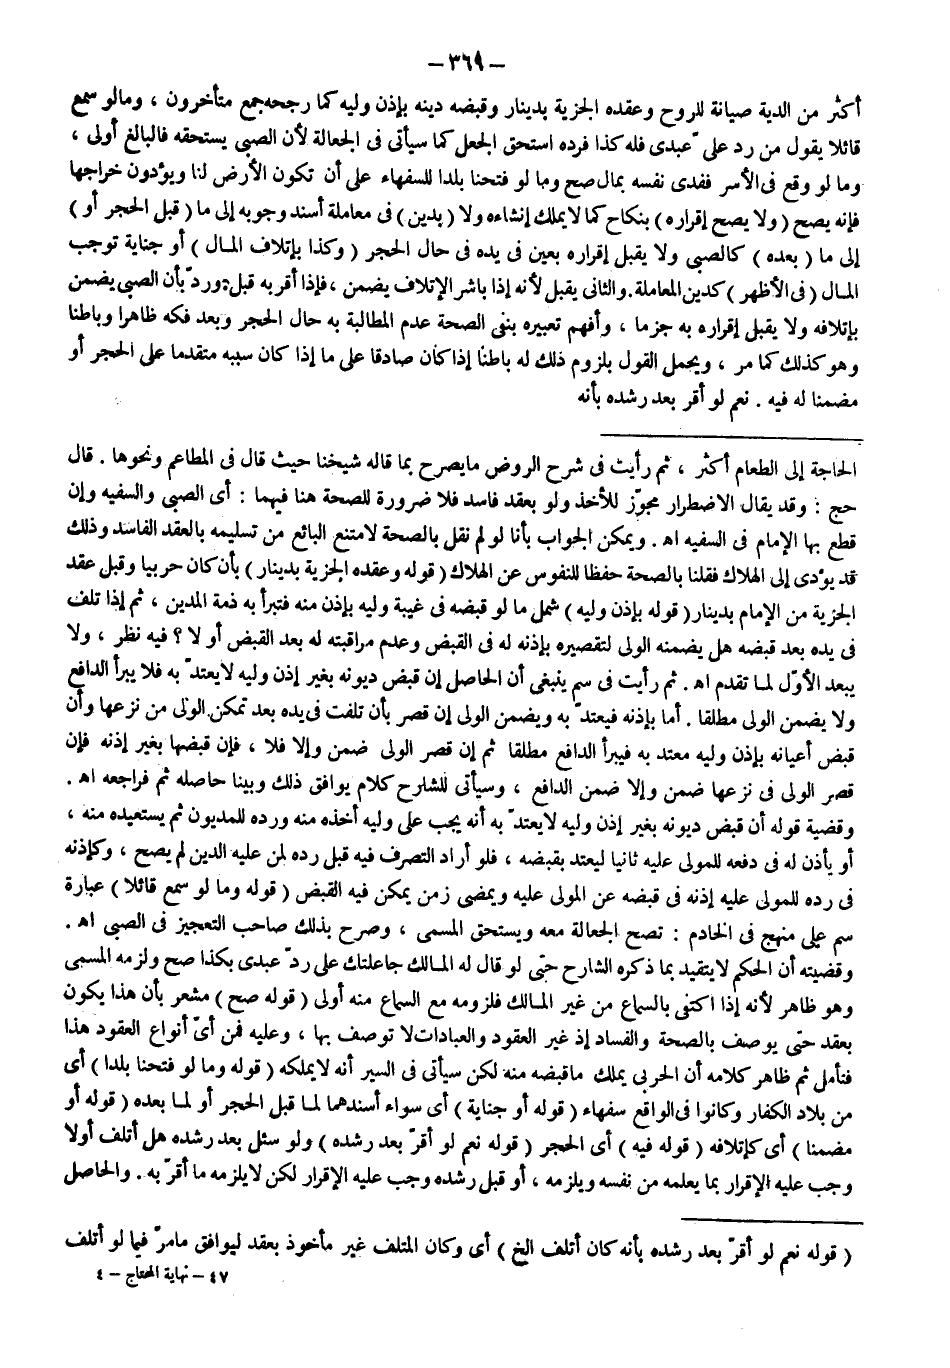 - ٣٦٩ -
أكثر من الدية صيانة للروح وعقده الجزية بدينار وقبضه دينه بإذن وليه كما رجحه جمع متأخرون ، ومالو سمع
قائلا يقول من رد علىّ عبدى فله كذا فرده استحق الجعل كما سيأتى فى الجعالة لأن الصبى يستحقه فالبالغ أولى ،
وما لو وقع فى الأسر ففدى نفسه بمال صح وما لو فتحنا بلدا للسفهاء على أن تكون الأرض لنا ويؤدون خراجها
فإنه يصح ( ولا يصح إقراره ) بنكاح كما لا يملك إنشاءه ولا ( بدين ) فى معاملة أسند وجوبه إلى ما ( قبل الحجر أو )
إلى ما ( بعده ) كالصبى ولا يقبل إقراره بعين فى يده فى حال الحجر ( وكذا بإتلاف المال ) أو جناية توجب
المال ( فى الأظهر ) كدين المعاملة . والثانى يقبل لأنه إذا باشر الإتلاف يضمن ، فإذا أقر به قبل : وردّ بأن الصبى يضمن
بإتلافه ولا يقبل إقراره به جزما ، وأفهم تعبيره بنفى الصحة عدم المطالبة به حال الحجر وبعد فكه ظاهرا وباطنا
وهو كذلك كما مر ، ويحمل القول بلزوم ذلك له باطنا إذا كان صادقا على ما إذا كان سببه متقدما على الحجر أو
مضمنا له فيه . نعم لو أقر بعد رشده بأنه
الحاجة إلى الطعام أكثر ، ثم رأيت فى شرح الروض ما يصرح بما قاله شيخنا حيث قال فى المطاعم ونحوها . قال
حج : وقد يقال الاضطرار مجوّز للأخذ ولو بعقد فاسد فلا ضرورة للصحة هنا فيهما : أى الصبى والسفيه وإن
قطع بها الإمام فى السفيه اه . ويمكن الجواب بأنا لو لم نقل بالصحة لامتنع البائع من تسليمه بالعقد الفاسد وذلك
قد يؤدى إلى الهلاك فقلنا بالصحة حفظا للنفوس عن الهلاك ( قوله وعقده الجزية بدينار ) بأن كان حربيا وقبل عقد
الجزية من الإمام بدينار ( قوله بإذن وليه ) شمل ما لو قبضه فى غيبة وليه بإذن منه فتبرأ به ذمة المدين ، ثم إذا تلف
فى يده بعد قبضه هل يضمنه الولى لتقصيره بإذنه له فى القبض وعدم مراقبته له بعد القبض أو لا ؟ فيه نظر ، ولا
يبعد الأوّل لما تقدم اه . ثم رأيت فى سم ينبغى أن الحاصل إن قبض ديونه بغير إذن وليه لا يعتدّ به فلا يبرأ الدافع
ولا يضمن الولى مطلقا . أما بإذنه فيعتدّ به ويضمن الولى إن قصر بأن تلفت فى يده بعد تمكن الولى من نزعها وأن
قبض أعيانه بإذن وليه معتد به فيبرأ الدافع مطلقا ثم إن قصر الولى ضمن وإلا فلا ، فإن قبضها بغير إذنه فإن
قصر الولى فى نزعها ضمن وإلا ضمن الدافع ، وسيأتى للشارح كلام يوافق ذلك وبينا حاصله ثم فراجعه اه .
وقضية قوله أن قبض ديونه بغير إذن وليه لا يعتدّ به أنه يجب على وليه أخذه منه ورده للمديون ثم يستعيده منه ،
أو يأذن له فى دفعه للمولى عليه ثانيا ليعتد بقبضه ، فلو أراد التصرف فيه قبل رده لمن عليه الدين لم يصح ، وكإذنه
فى رده للمولى عليه إذنه فى قبضه عن المولى عليه ويمضى زمن يمكن فيه القبض ( قوله وما لو سمع قائلا ) عبارة
سم على منهج فى الخادم : تصح الجعالة معه ويستحق المسمى ، وصرح بذلك صاحب التعجيز فى الصبى اه .
وقضيته أن الحكم لا يتقيد بما ذكره الشارح حتى لو قال له المالك جاعلتك على ردّ عبدى بكذا صح ولزمه المسمى
وهو ظاهر لأنه إذا اكتفى بالسماع من غير المالك فلزومه مع السماع منه أولى ( قوله صح ) مشعر بأن هذا يكون
بعقد حتى يوصف بالصحة والفساد إذ غير العقود والعبادات لا توصف بها ، وعليه فمن أىّ أنواع العقود هذا
فتأمل ثم ظاهر كلامه أن الحربى يملك ما قبضه منه لكن سيأتى فى السير أنه لا يملكه ( قوله وما لو فتحنا بلدا ) أى
من بلاد الكفار وكانوا فى الواقع سفهاء ( قوله أو جناية ) أى سواء أسندهما لما قبل الحجر أو لما بعده ( قوله أو
مضمنا ) أى كإتلافه ( قوله فيه ) أى الحجر ( قوله نعم لو أقرّ بعد رشده ) ولو سئل بعد رشده هل أتلف أولا
وجب عليه الإقرار بما يعلمه من نفسه ويلزمه ، أو قبل رشده وجب عليه الإقرار لكن لا يلزمه ما أقرّ به . والحاصل
( قوله نعم لو أقرّ بعد رشده بأنه كان أتلف الخ ) أى وكان المتلف غير مأخوذ بعقد ليوافق مامرّ فيما لو أتلف
٤٧ - نهاية المحتاج - ٤